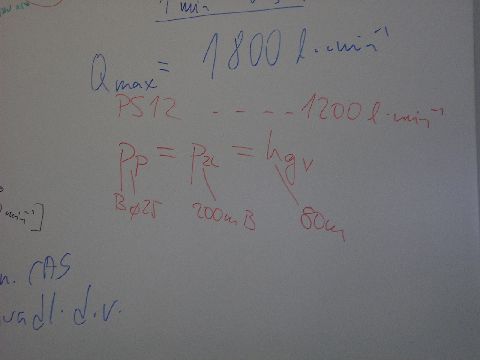 1 min
Qmax = 1800 l·min⁻¹
PS12 - - - - 1200 l·min⁻¹
pp = pzl = hgv
Bφ25 200m B 80m
min⁻¹]
n. CAS
d.v.